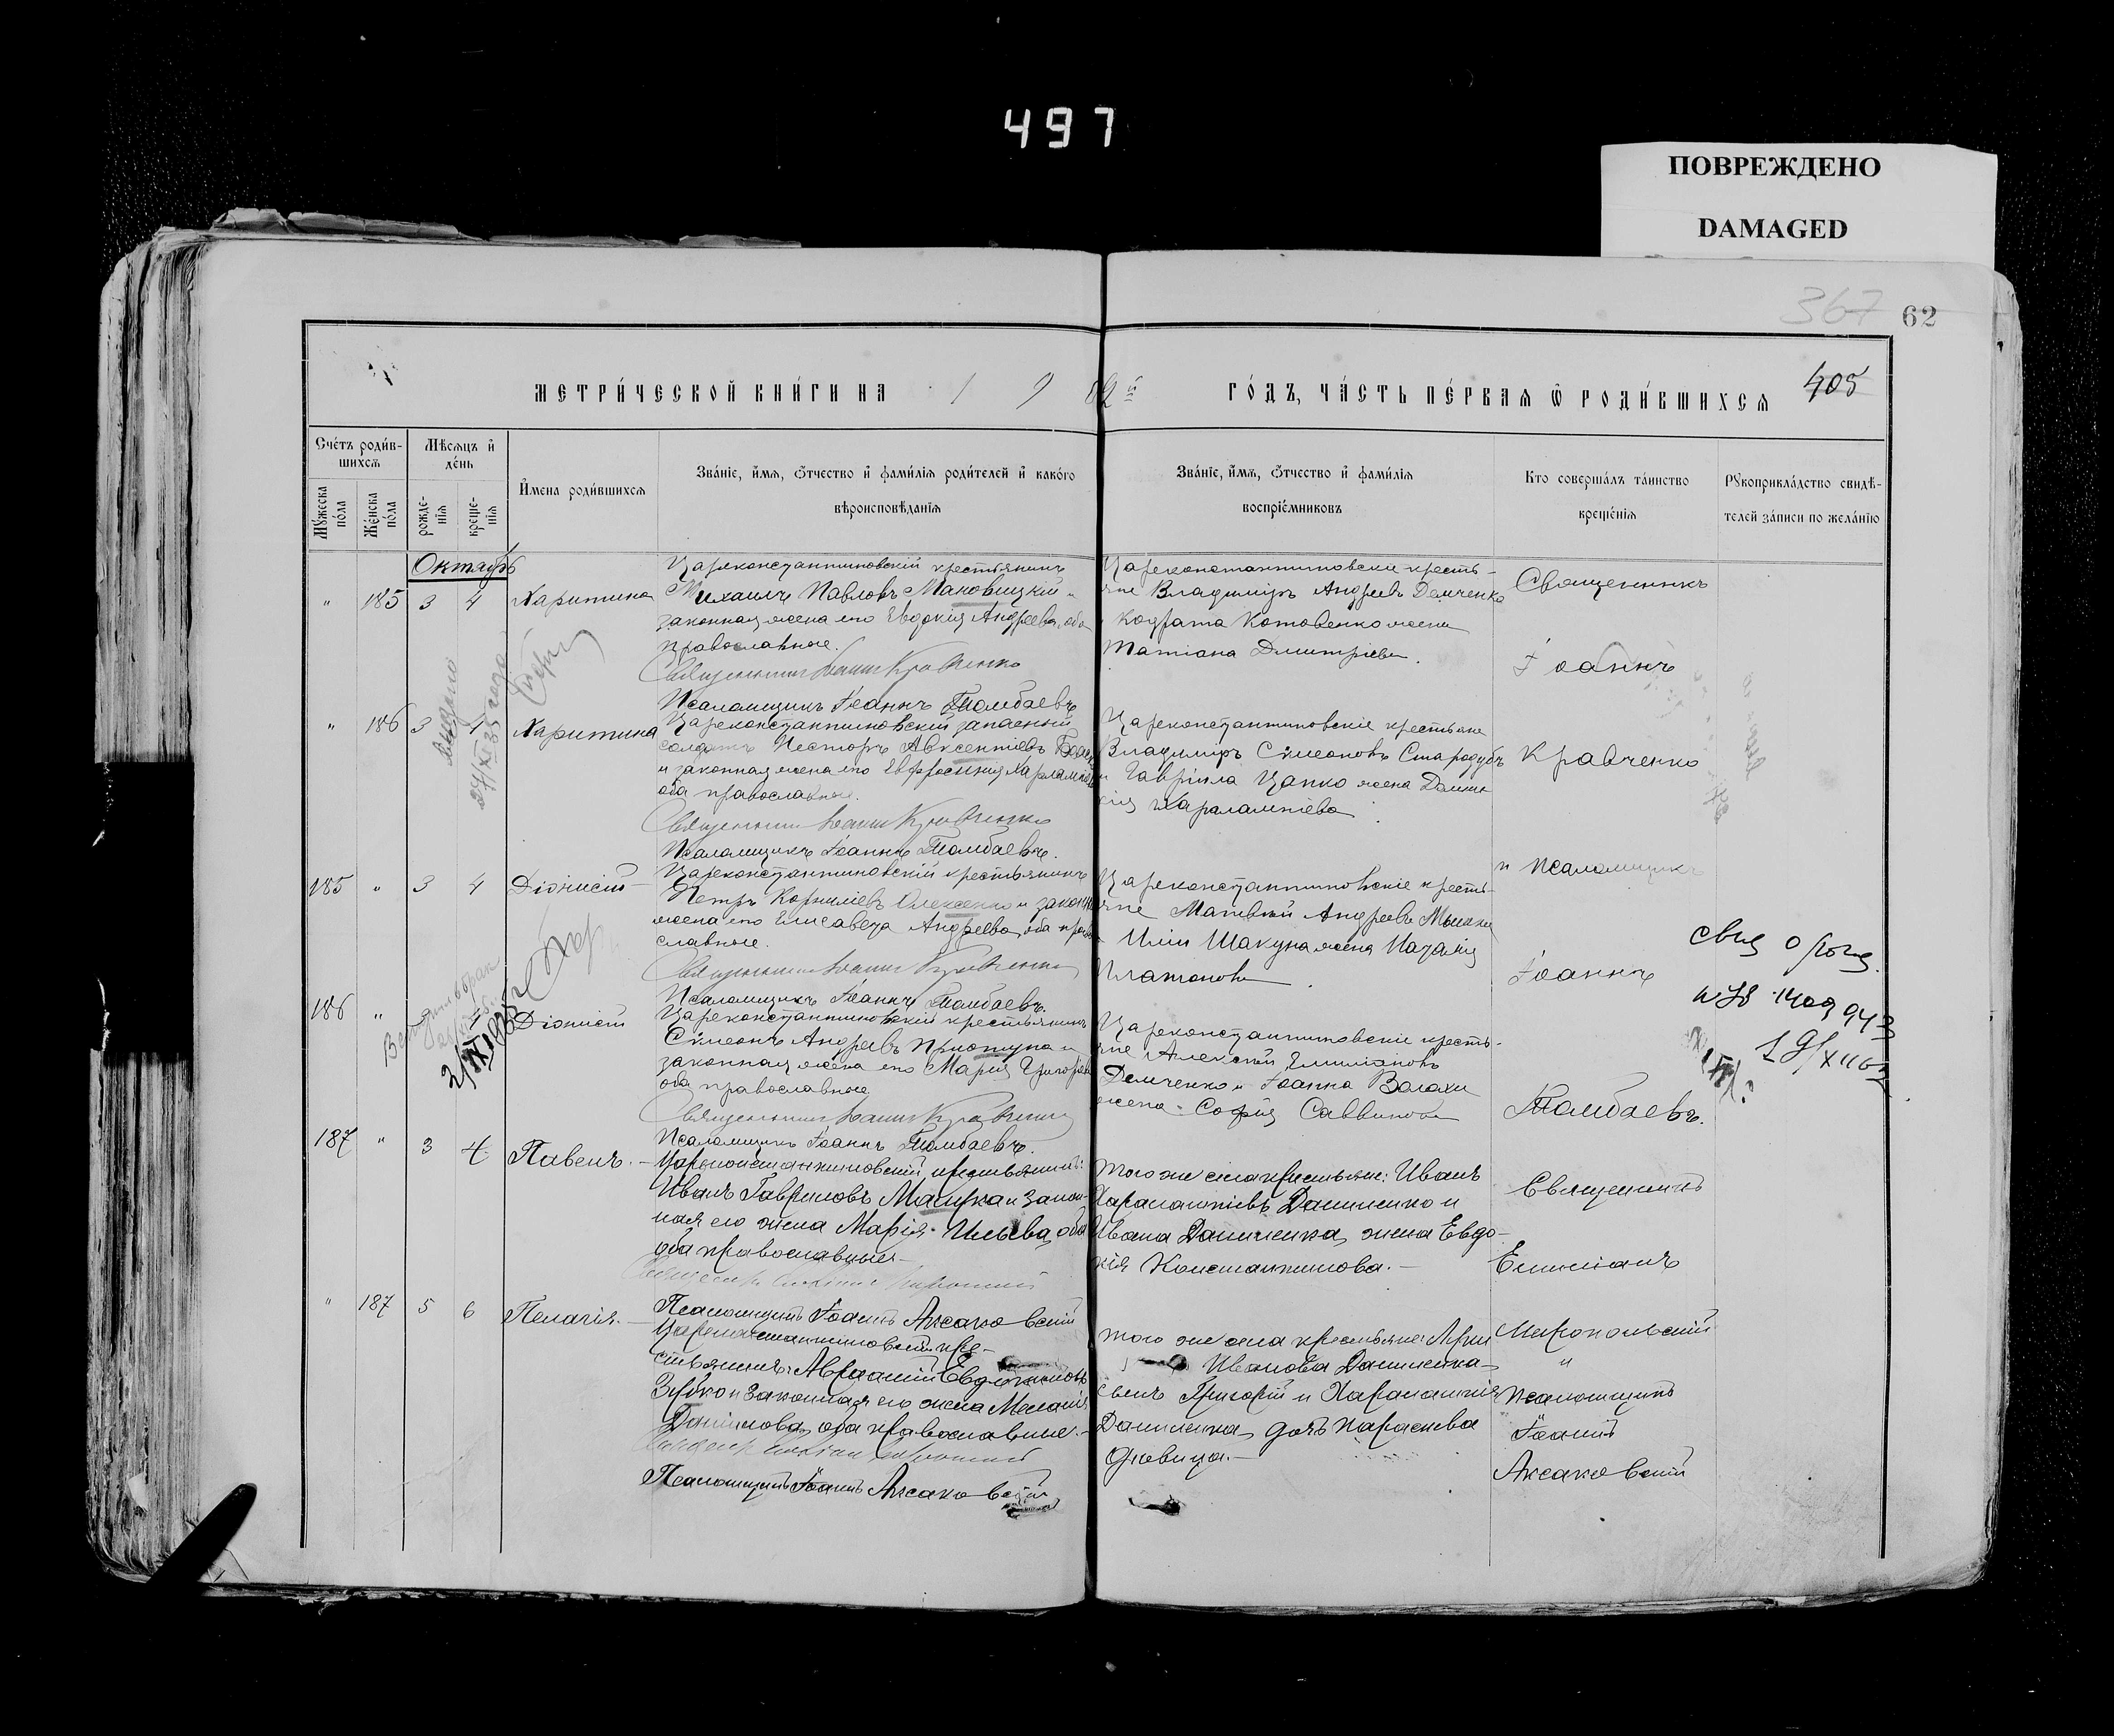 497
ПОВРЕЖДЕНО
DAMAGED
367
62
405
МЕТРИ́ЧЕСКОЙ КНИ́ГИ НА 1902й ГО́ДЪ, ЧА́СТЬ ПЕ́РВАЯ Ѿ РОДИ́ВШИХСЯ
Сче́тъ роди́в-
шихся
Мѣ́сяцъ и҆
де́нь
Му́жеска
по́ла
Же́нска
по́ла
рожде-
нія
креще-
нія
И҆мена роди́вшихся
Зва́ніе, и҆́мя, ѻ҆́тчество и҆ фами́лія роди́телей и҆ како́го
вѣроисповѣ́данія
Зва́ніе, и҆́мя, ѻ҆́тчество и҆ фами́лія
воспріе́мниковъ
Кто соверша́лъ та́инство
креще́нія
Рукоприкла́дство свидѣ́-
телей за́писи по жела́нію
Октябрь
" 185 3 4 Харитина
Цареконстантиновскій крестьянинъ
Михаилъ Павловъ Мановицкій и
законная жена его Евдокія Андреева, оба
православные.
Священникъ Іоаннъ Кравченко
Псаломщикъ Іоаннъ Тамбаевъ
Цареконстантиновскіе кресть-
яне Владиміръ Андреевъ Демченко
и Кодрата Котовенко жена
Татіана Димитріева.
Священникъ
Іоаннъ
Кравченко
и псаломщикъ
Іоаннъ
Тамбаевъ.
27/XI 35 года
" 186 3 4 Харитина
Цареконстантиновскій запасный
солдатъ Несторъ Авксентіевъ
и законная жена его Евфросинія Харлампіева
оба православные.
Священникъ Іоаннъ Кравченко
Псаломщикъ Іоаннъ Тамбаевъ.
Цареконстантиновскіе крестьяне
Владиміръ Сѵмеоновъ Стародубъ
и Гавріила Цапко жена Домни-
кія Харалампіева
185 " 3 4 Діонисій
Цареконстантиновскій крестьянинъ
Петръ Корниліевъ Олексенко и законная
жена его Елисавета Андреева, оба право-
славные.
Священникъ Іоаннъ Кравченко
Псаломщикъ Іоаннъ Тамбаевъ.
Цареконстантиновскіе кресть-
яне Матвѣй Андреевъ
и Иліи Шакуна жена Наталія
Платонова.
186 " Діонисій
Цареконстантиновскій крестьянинъ
Сѵмеонъ Андреевъ Приступа и
законная жена его Марія Григорьева
оба православные
Священникъ Іоаннъ Кравченко
Псаломщикъ Іоаннъ Тамбаевъ.
Цареконстантиновскіе кресть-
яне Алексѣй Емиліановъ
Демченко и Іоанна Волохи
жена Софія Саввинова
187 " 3 4. Павелъ.
Цареконстантиновскій крестьянинъ:
Иванъ Гавриловъ Мацука и закон-
ная его жена Марія Ильева, оба
оба православные
Псаломщикъ Іоаннъ Аксаковскій
того же села крестьяне: Иванъ
Харалампіевъ Даниленко и
Ивана Даниленка, жена Евдо-
кія Константинова.
Священникъ
Емиліанъ
Миропольскій
"
псаломщикъ
Іоаннъ
Аксаковскій
" 187 5 6 Пелагія.
Цареконстантиновскій кре-
стьянинъ: Аврамій Евдокимовъ
Зубко и законная его жена Меланія
Даніилова, оба православные.
Псаломщикъ Іоаннъ Аксаковскій
того же села крестьяне:
Иванова Даниленка
сынъ Григорій и Харалампія
Даниленка, дочь Параскева
дѣвица.